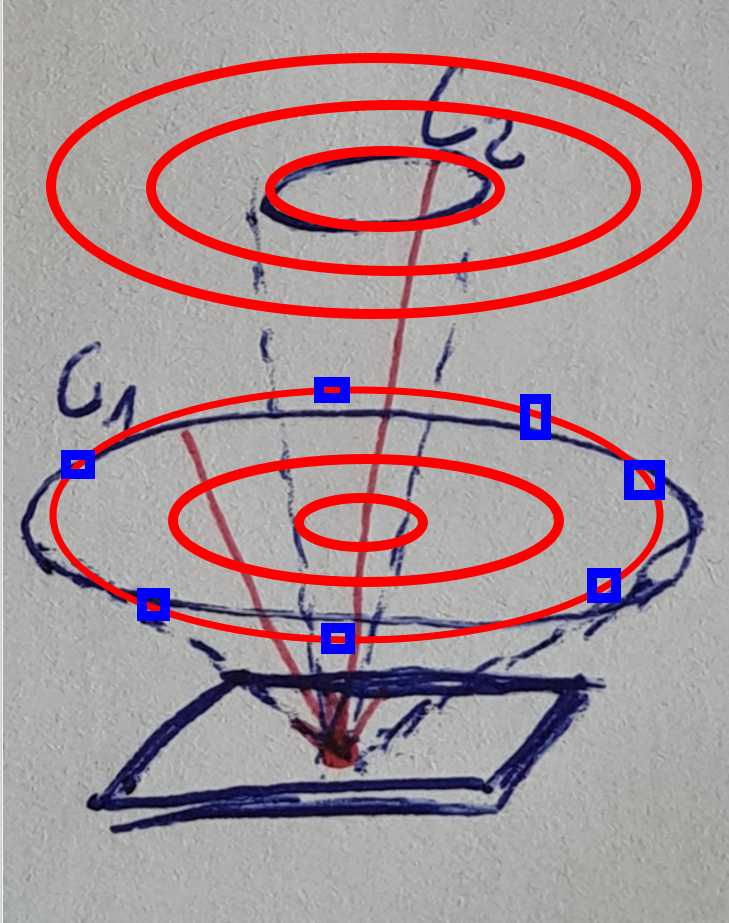 C2
C1